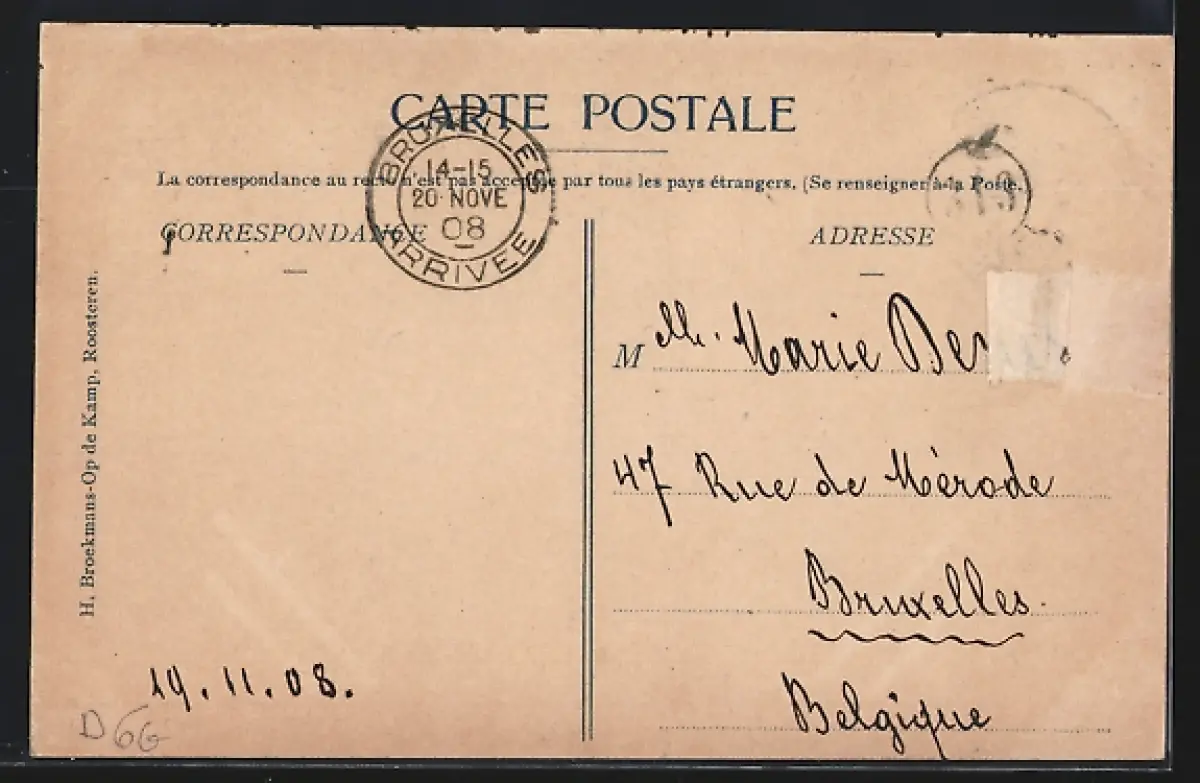 CARTE POSTALE
La correspondance au recto n'est pas acceptée par tous les pays étrangers. (Se renseigner à la Poste.)
BRUXELLES
14-15
20 NOVE
08
ARRIVEE
CORRESPONDANCE
ADRESSE
H. Broekmans-Op de Kamp, Roosteren.
M elle. Marie
47 Rue de Mérode
Bruxelles
Belgique
19.11.08.
D6G